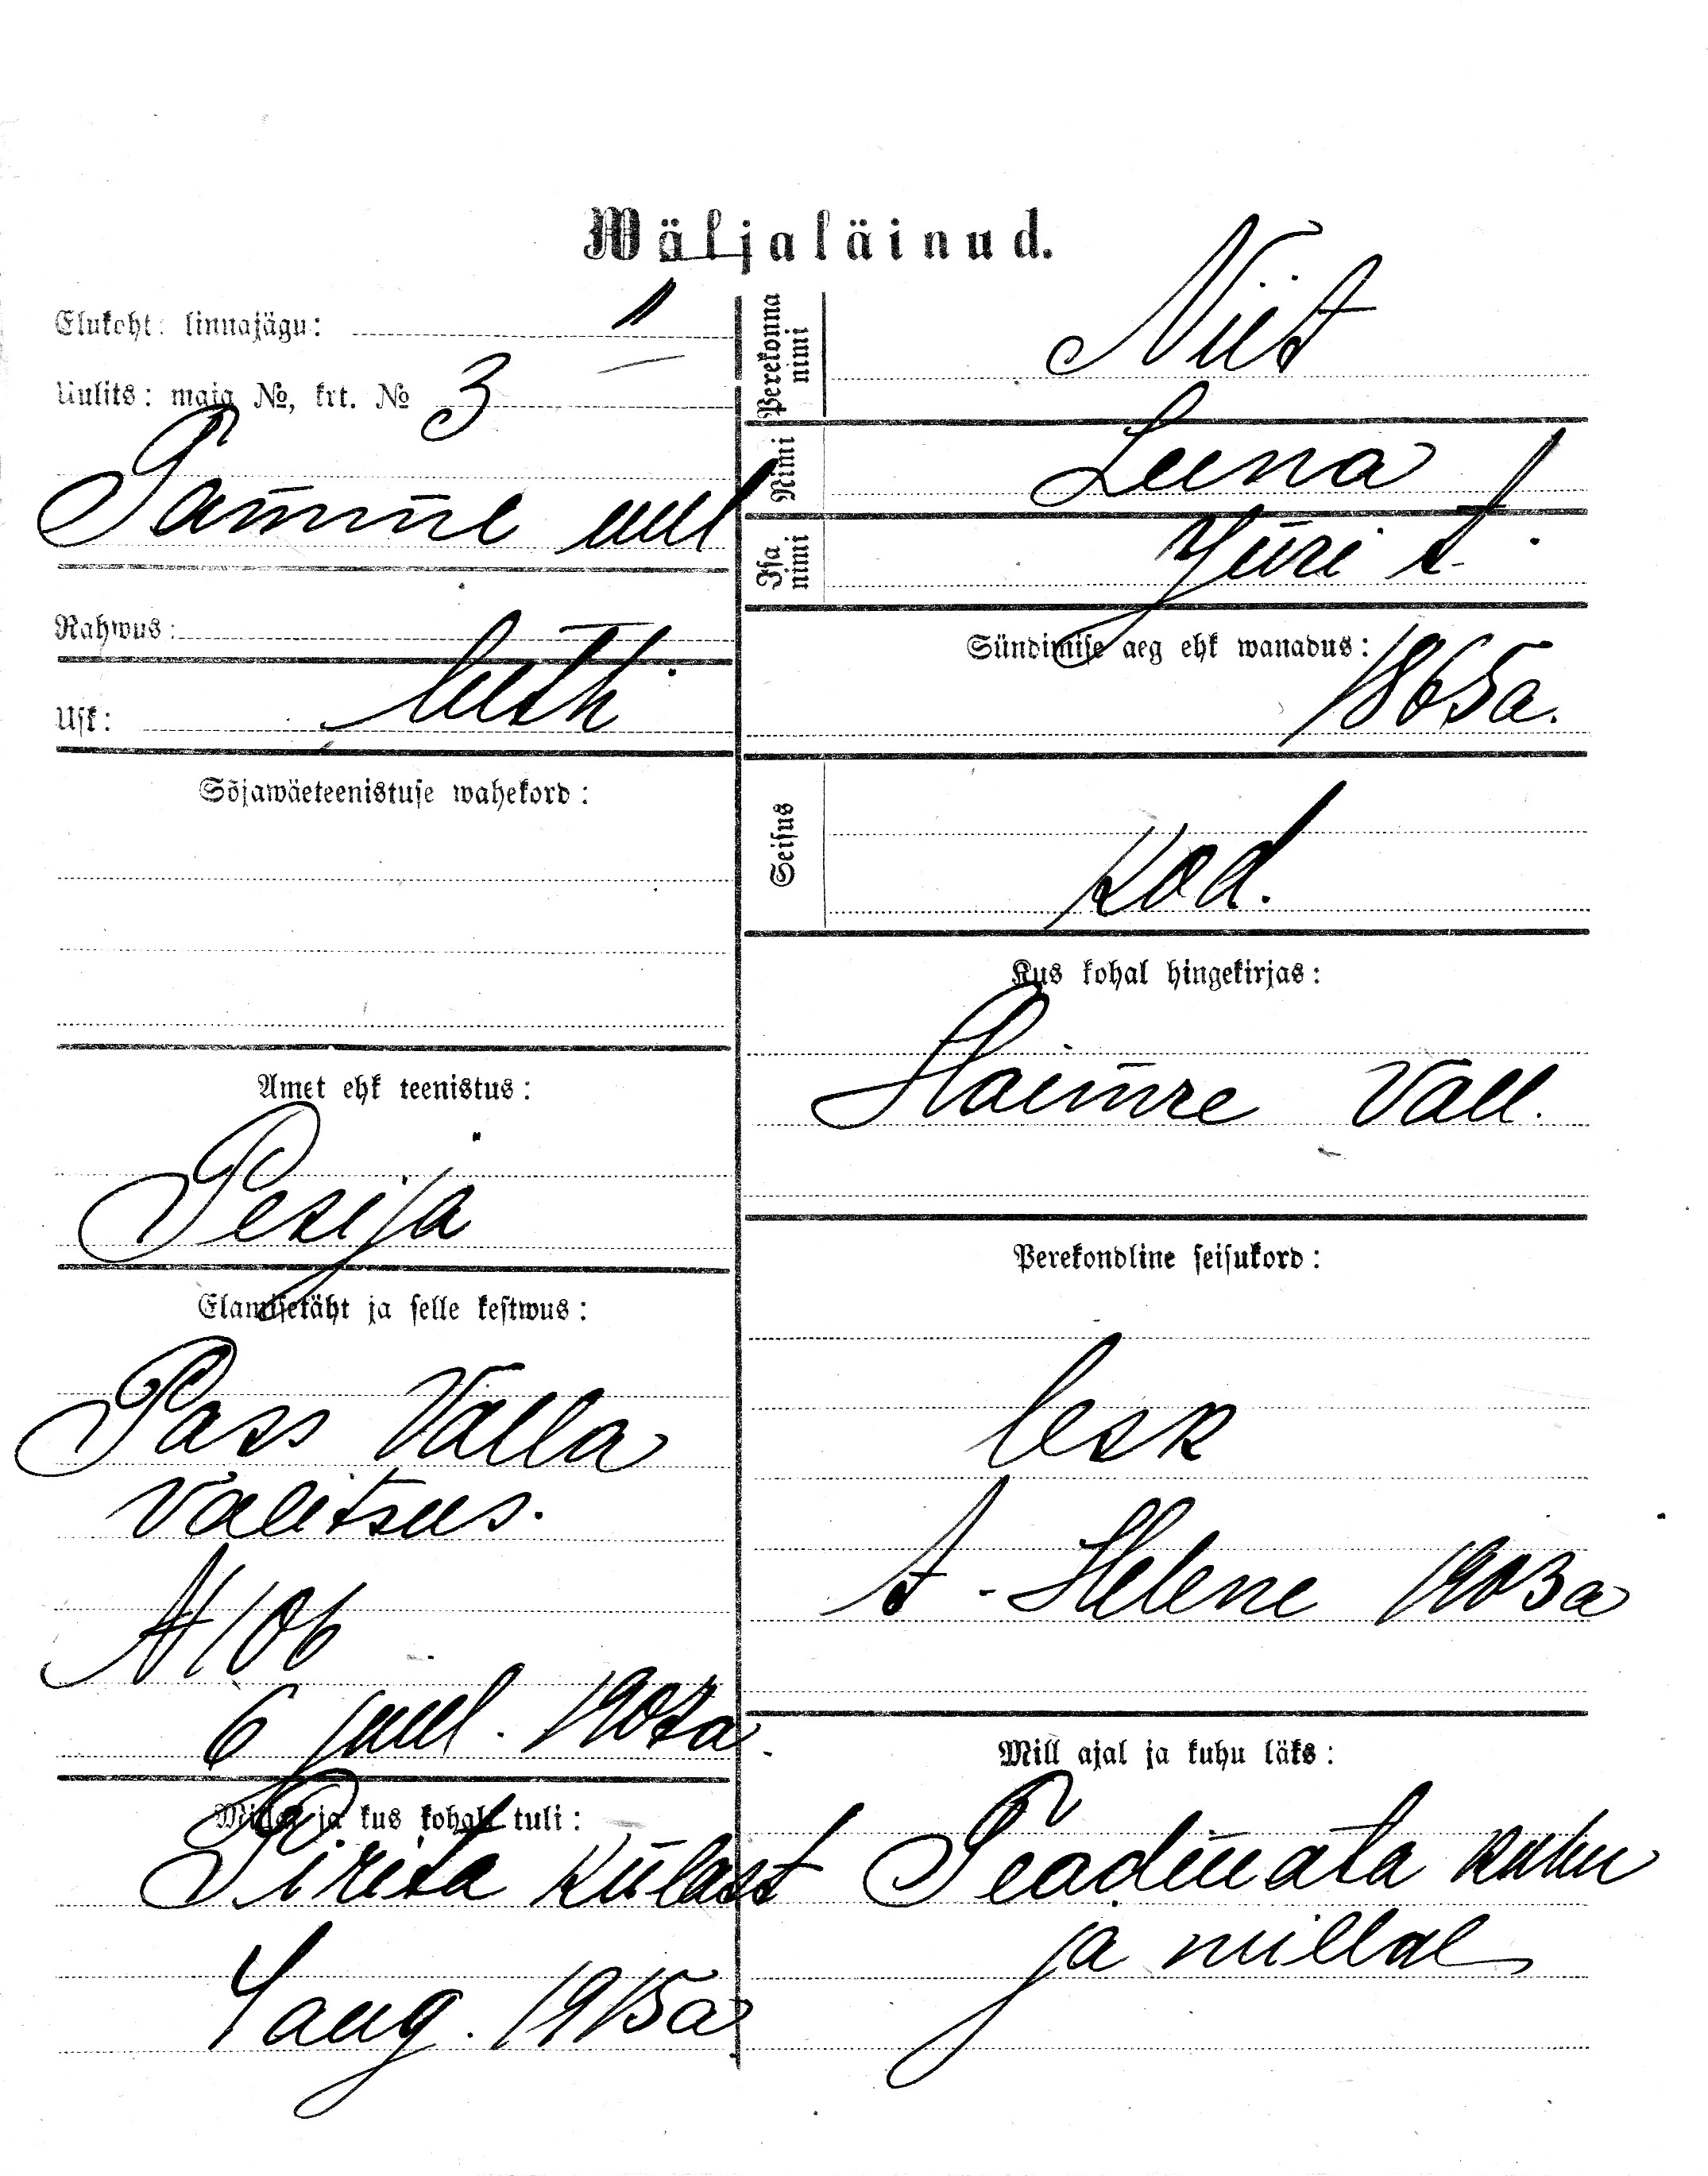 Wäljaläinud.
Elukoht: linnajägu: II
Uulits: maja №, krt. № 3
Tamme uul
Rahwus:
Usk: luth
Sõjawäeteenistuse wahekord:
Amet ehk teenistus:
Pesija
Elamisetäht ja selle kestwus:
Pass Valla
valitsus.
№ 106
6 juul. 1907a.
Millal ja kus kohalt tuli:
Pirita külast
4 aug. 1915a
Perekonna nimi Niit
Nimi Leena
Isa nimi Jüri t.
Sündimise aeg ehk wanadus:
1865a.
Seisus kod.
Kus kohal hingekirjas:
Haimre Vall.
Perekondline seisukord:
lesk
t - Helene 1903a
Mill ajal ja kuhu läks:
Teadmata kuhu
ja millal